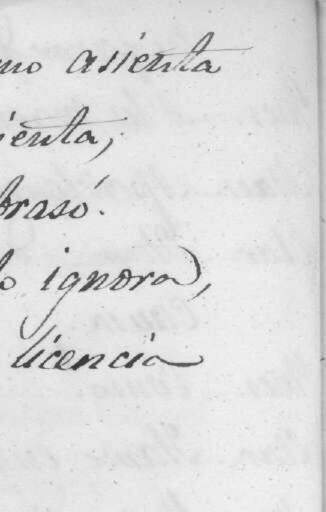 mo asienta
ienta,
brasó.
lo ignora,
licencia